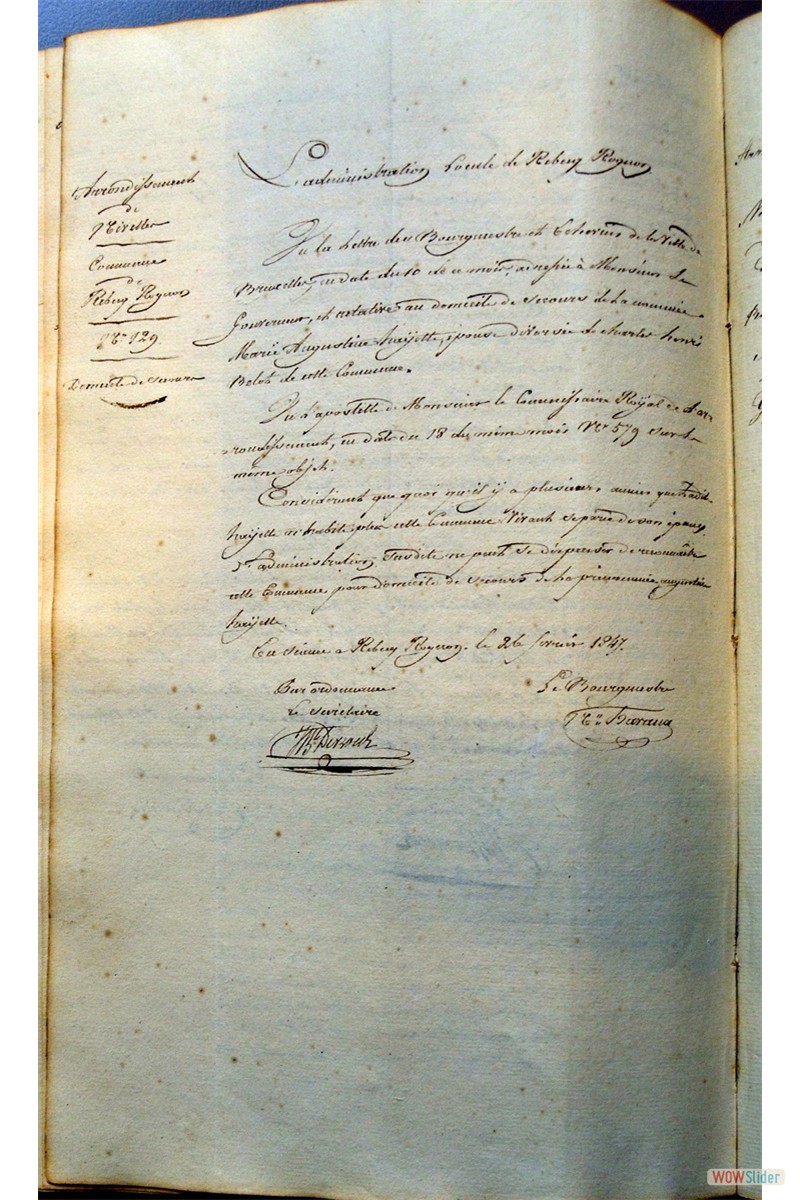 Arrondissement
de
Nivelles
Commune
de
Rebecq Rognon
N° 129.
Domicile de secours
L'administration Locale de Rebecq Rognon
Vu la lettre des Bourgmestre et Echevins de la Ville de
Bruxelles, en date du 10 de ce mois, adressée à Monsieur le
Gouverneur, et relative au domicile de secours de la nommée
Marie Augustine hayette, épouse divorcée de charles henri
Belot de cette Commune.
Vu l'apostille de Monsieur le Commissaire Royal de l'ar-
rondissement, en date du 18 du même mois N° 579 sur le
même objet.
Considérant que quoi qu'il y a plusieurs années que la dite
hayette n'habite plus cette Commune vivant separée de son époux,
L'administration susdite ne peut se dispenser de reconnaître
cette Commune pour domicile de secours de la prénommée augustine
hayette.
En séance à Rebecq Rognon, le 26 février 1847.
Par ordonnance
Le Secrétaire
Le Bourgmestre
WOWSlider